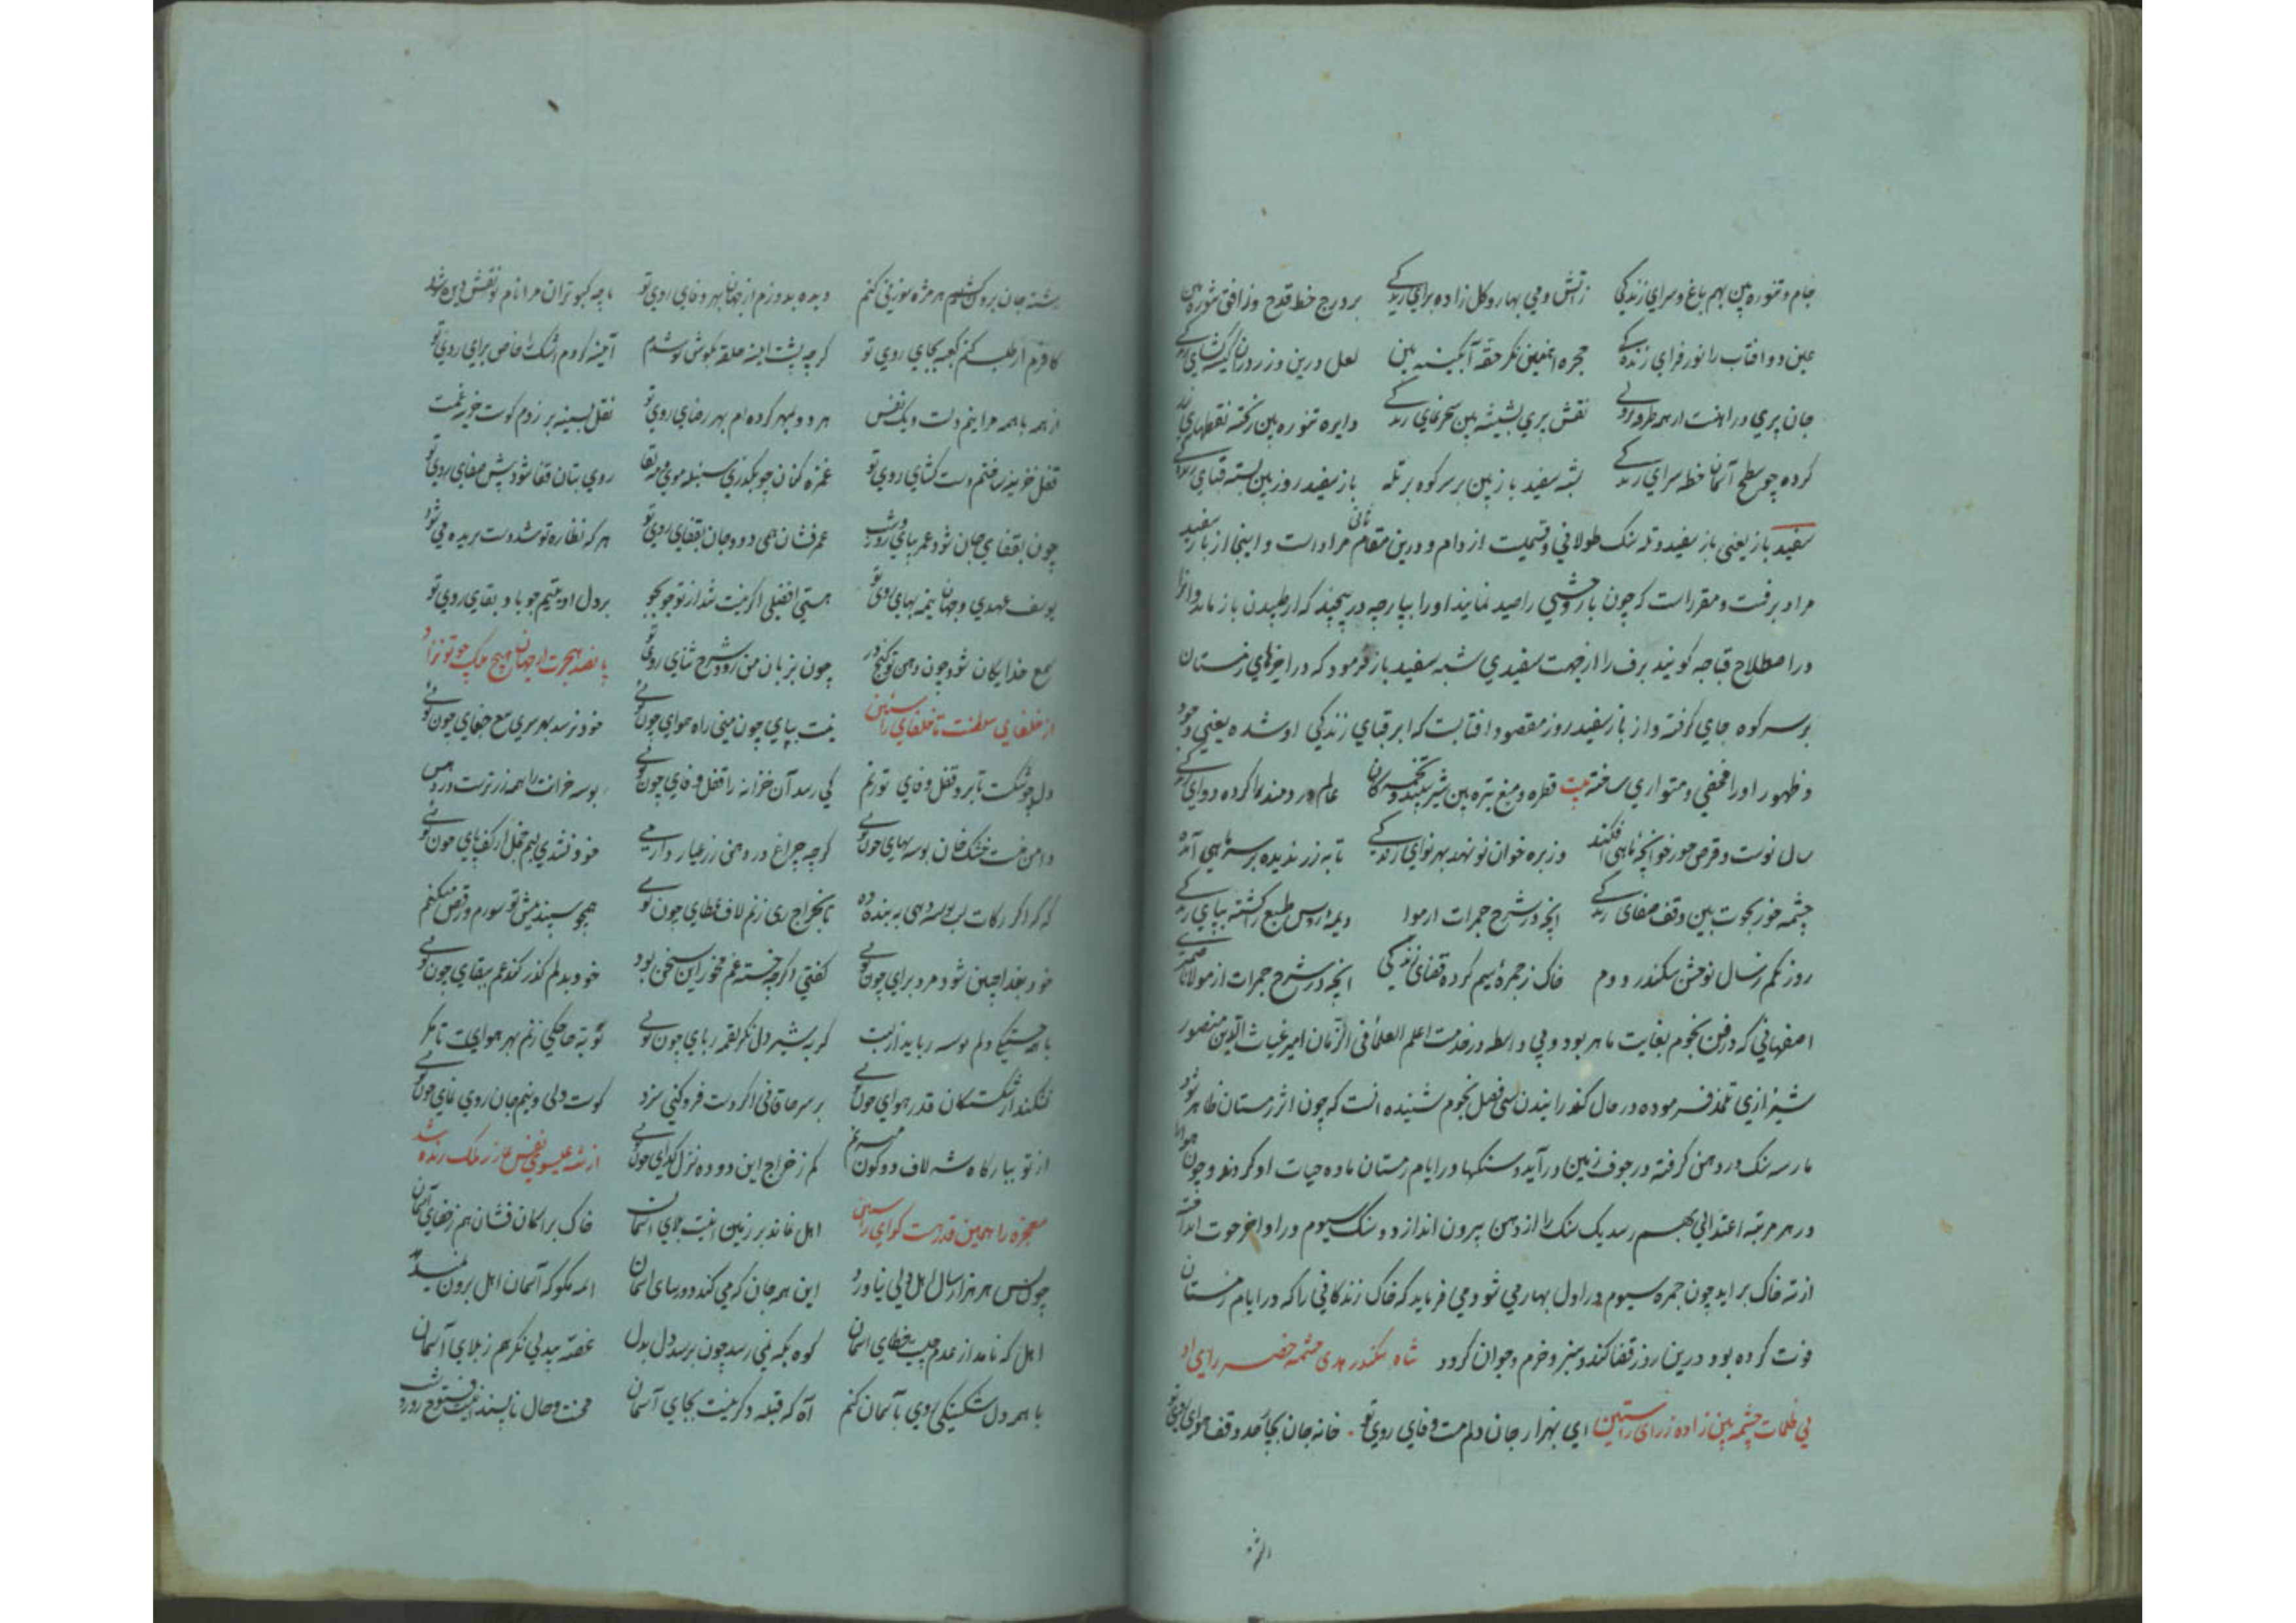 جام و تنوره بین بهم باغ و سرای زندگی زآتش و می بهار و گل زاده برای زندگی بر درج خط قدح و ز افق تنوره بین
عین دو افتاب را نور فزای زندگی حجره آهنین نگر حقه آبگینه بین لعل درین و زر در آن کیسه گشای زندگی
جان پری در آهنست از همه طرفه نقش پری بشیشه بین سحر نمای زندگی دایره تنوره بین ریخته نقطهای زر
کرده چو سطح آسمان خط سرای زندگی بسته سفید باز بین بر سر کوه بر تله باز سفید روز بین بسته قبای زندگی
سفید باز یعنی باز سفید و تله سنک طولانی و قسمیست از دام و درین مقام ثانی مراد است و اینجا از باز سفید
مراد برفست و مقرر است که چون باز وحشی را صید نمایند او را بپارچه در پیچند که از طپیدن باز ماند و آنرا
در اصطلاح قباچه گویند برف را از جهت سفیدی شبه سفید باز فرمود که در اخرهای زمستان
بر سر کوه جای گرفته و از باز سفید روز مقصود افتابست که ابر قبای زندگی او شده یعنی وجود
و ظهور او را مخفی و متواری ساخته بیت قطره و میغ تیره بین شیر سفید و تخمکان عالم دردمند را کرده دوای زندگی
سال نوست و قرص خور خوانچه ماهی افکند وز بره خوان نو نهد بهر نوای زندگی تا به زر ندیده بر سر ماهی آمده
چشمه خور بحوت بین وقف صفای زندگی انچه در شرح جمرات از موا
روز یکم ز سال نو جشن سکندر دوم خاک ز جمره سیم کرده قضای زندگی انچه در شرح جمرات از مولانا
اصفهانی که در فن نجوم بغایت ماهر بود و بی واسطه در خدمت اعلم العلما فی الزمان امیر غیاث الدین منصور
شیرازی تلمذ فرموده در حال گذرانیدن سی فصل نجوم شنیده انست که چون اثر زمستان ظاهر شود
مار سه سنک در دهن گرفته در جوف زمین درآید و سنکها در ایام زمستان ماده حیات او گردند و چون هوا
در هر مرتبه اعتدالی بهم رسد یک سنک را از دهن بیرون اندازد و سنگ سیوم در اواخر حوت انداخته
از ته خاک براید چون جمره سیوم در اول بهار می شود می فرماید که خاک زندگانی را که در ایام زمستان
فوت کرده بود درین روز قضا کند و سبز و خرم و جوان گردد شاه سکندر هدی چشمه خضر رای او
بی ظلمات چشمه بین زاده ز رای راستین ای بهزار جان دلم مست وفای روی تو خانه جان بچار حد وقف هوای روی تو
رشته جان برون کشم هر مژه سوزنی کنم دیده بدوزم از جهان بهر وفای روی تو تا چه کبوتران مرا نام تو نقش دیده شد
کافرم ار طلب کنم کعبه بجای روی تو گرچه پشت اینه حلقه بگوش تو شدم آینه کردم اشک را خاص برای روی تو
از همه با همه مرا نیم دلست و یک نفس هر دو بمهر کرده ام بهر رضای روی تو نقل بسینه بر زدم کوست خزینه غمت
قفل خزینه ساختم دست گشای روی تو غمزه کنان چو بگذری سنبله موی مه قفا روی بتان قفا شود پیش صفای روی تو
چون بقفای جان شود عمر بپای روز و شب عمر فشان همی دود جان بقفای روی تو هر که نظاره تو شد دست بریده می شود
یوسف عهدی و جهان نیم بهای روی تو هستی افضلی اگر نیست شد از تو جو بجو بر دل او یتیم جو باد بقای روی تو
سمع خدایگان شود چون دهن تو گنج در چون بزبان من رود شرح ثنای روی تو پانصد هجرت از جهان هیچ ملک چو تو نزاد
از خلفای سلطنت تا خلفای راستین نیست بپای چون منی راه هوای چون تویی خود نرسد بهر سری تیغ جفای چون تویی
دل چو شکست تا برو قفل وفای تو زنم کی رسد آن خزانه را قفل وفای چون تویی بوسه خرانت را همه زر ترست در دهن
دامن خشک خان بوسه بهای چون تویی گرچه چراغ در دهن زر عیار دارمی خود نشدی بم خجل از کف پای چون تویی
گر زکات لب بوسه دهی به بنده ده تا بخراج ری زنم لاف عطای چون تویی همچو سپند پیش تو سوزم و رقص میکنم
خود بفدا چنین شود مرد برای چون تویی گفتی اگر چه خسته غم مخور این سخن بود خود بدلم گذر کند غم ببقای چون تویی
با همه خستگی دلم بوسه رباید از لبت گربه شیر دل نگر لقمه ربای چون تویی نوبه خاقانی زنم بهر هوایت تا مگر
نشکند از شکستگان قدر هوای چون تویی بر سر خاقانی اگر دست فرو کنی سزد کوست دلی و نیم جان روی نمای چون تویی
از تو ببارگاه شه لاف دو کون می زنم کم ز خراج این دو ده نزل گدای چون تویی از شه عیسوی نفس عازر ملک زنده شد
معجزه را همین قدر هست گوای راستین اهل نماند بر زمین اینت بلای آسمان خاک بر آسمان فشان هم ز جفای آسمان
چون پس هر هزار سال اهل دلی نیاورد این همه جان که می کند دور سای آسمان ابله مگو که آسمان اهل برون نمیدهد
اهل که نامد از عدم چیست خطای آسمان کوه بکه نمی رسد چون برسد دل بدل غصه بیدلی نگر هم ز بلای آسمان
با همه دل شکستگی روی بآسمان کنم آه که قبله دگر نیست بجای آسمان محنت و حال ناپسند نوح روز و شب